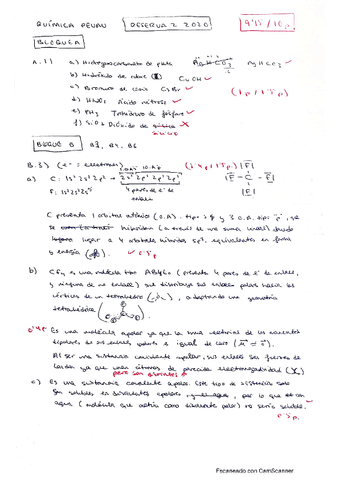 QUÍMICA PEVAU RESERVA 2 2020 9'15/10p
BLOQUE A
A.1) a) Hidrogenocarbonato de plata AgHCO3
b) Hidruro de cobre (I) CuOH
c) Bromuro de cesio CsBr
d) HNO2 Ácido nitroso (1p/1'5p)
e) PH3 Trihidruro de fósforo
f) SiO2 Dióxido de silicio
BLOQUE B B3, B4, B6
B.3) (e- = electrones)
a) C: 1s2 2s2 2p2 → 2s1 2p3
F: 1s2 2s2 2p5 4 pares de e- de enlace
C presenta 1 orbital atómico (O.A.) tipo s y 3 O.A. tipo p, se
hibridan (a través de una suma lineal) dando
lugar a 4 orbitales híbridos sp3, equivalentes en forma
y energía
b) CF4 es una molécula tipo AB4 (presenta 4 pares de e- de enlace,
y ninguno de no enlace) que distribuye sus enlaces polares hacia los
vértices de un tetraedro, adoptando una geometría
tetraédrica
Es una molécula apolar ya que la suma vectorial de los momentos
dipolares de sus enlaces polares es igual de cero
Al ser una sustancia covalente apolar, sus enlaces son fuerzas de
London ya que unen átomos de parecida electronegatividad (X)
pero son distintos
c) Es una sustancia covalente apolar. Este tipo de sustancias solo
son solubles en disolventes apolares, por lo que en
agua (molécula que actúa como disolvente polar) no sería soluble.
Escaneado con CamScanner